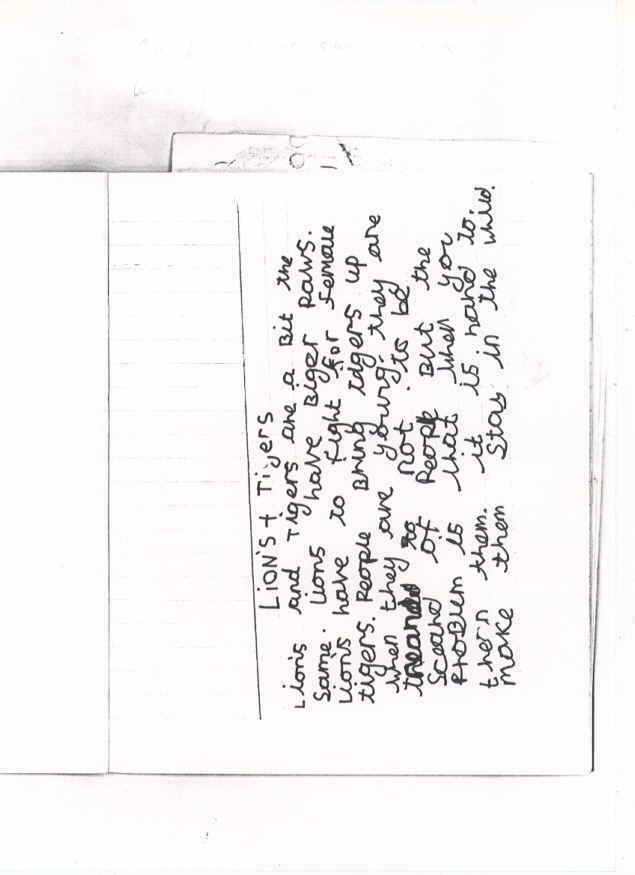 LION'S + Tigers
Lion's and Tigers are a Bit the
Same. Lions have Biger Paws.
Lion's have to fight for female
tigers. People Bring tdgers up
when they are young. they are
to not to be
Sceard of People But the
Problem is that when you
thern them. it is hard to
make them Stay in the whild.